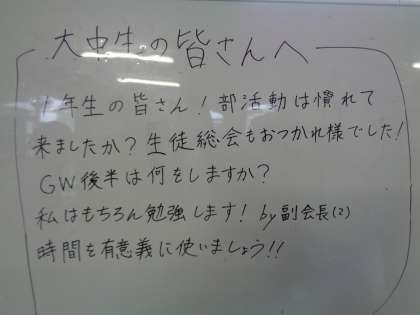 大中生の皆さんへ
1年生の皆さん！部活動は慣れて
来ましたか？生徒総会もおつかれ様でした！
GW後半は何をしますか？
私はもちろん勉強します！by副会長(2)
時間を有意義に使いましょう!!